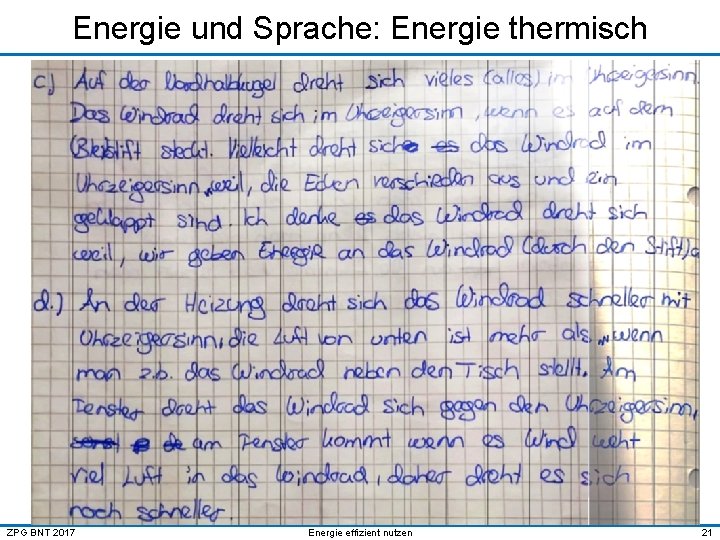 Energie und Sprache: Energie thermisch
c) Auf der Nordhalbkugel dreht sich vieles (alles) im Uhrzeigersinn.
Das Windrad dreht sich im Uhrzeigersinn, wenn es auf dem
(Bleistift steckt. Vielleicht dreht sich es das Windrad im
Uhrzeigersinn, weil, die Ecken verschieden aus und ein
geklappt sind. Ich denke es das Windrad dreht sich
weil, wir geben Energie an das Windrad (durch den Stift) a
d.) An der Heizung dreht sich das Windrad schneller mit
Uhrzeigersinn, die Luft von unten ist mehr als, wenn
man z.b. das Windrad neben den Tisch stellt. Am
Fenster dreht das Windrad sich gegen den Uhrzeigersinn,
am Fenster kommt wenn es Wind weht
viel Luft in das Windrad, daher dreht es sich
noch schneller.
ZPG BNT 2017
Energie effizient nutzen
21